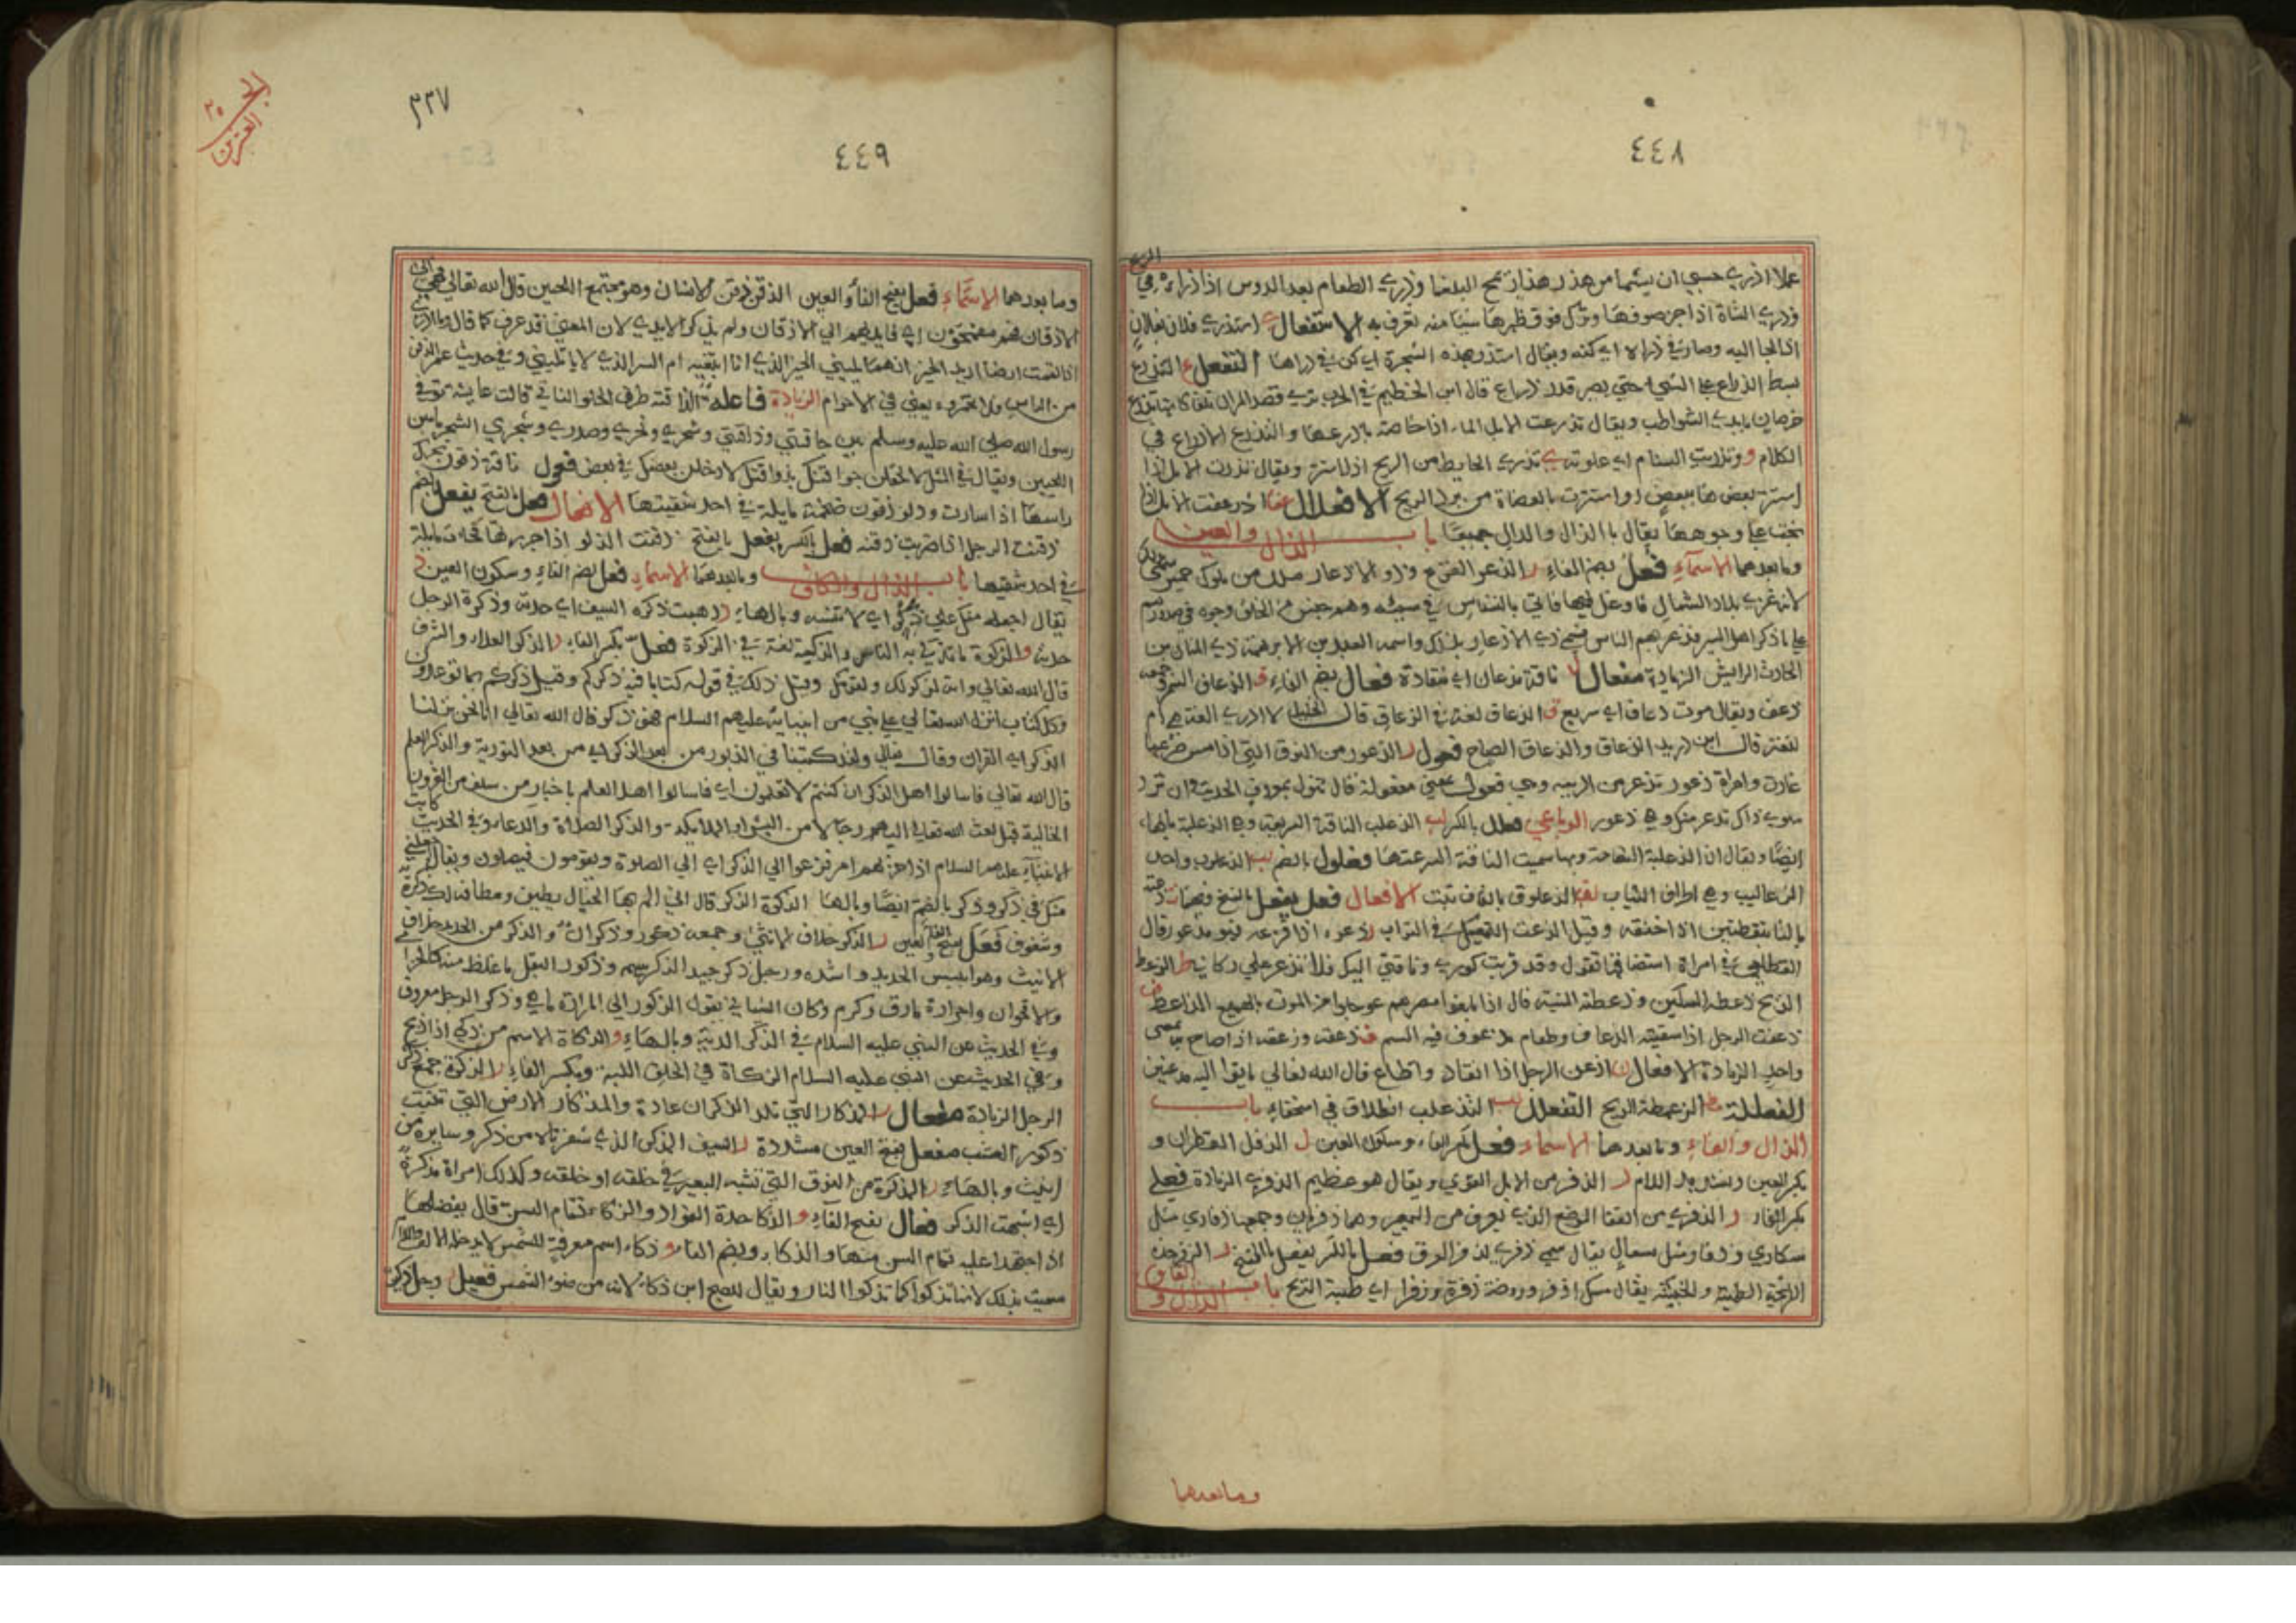 ٤٤٨
عملا اذري حسبي ان يشتما من هذر هذا ذيمح البلغا وذري الطعام بعد الدوس اذا ذراه في الريح
وذري الشاة اذا جز صوفها وترك فوق ظهرها شيئا منه تعرف به الاستفعال ي استذري فلان بفلان
اذا لجا اليه وصار في ذراه اي كنه ويقال استذر بهذه الشجرة اي كن في ذراها التفعل ع التذرع
بسط الذراع على الشي حتى يصير قدر ذراع قال ابن الخطيم في الحرب ترى قصد المران تلقا كانها تذرع
خرصان بايدي الشواطب ويقال تذرعت الابل الماء اذا خاضته باذرعها والتذرع الاذراع في
الكلام و وتذريت السنام اي علوته ي تذري الحايط من الريح اذا استتر ويقال تذرت الابل اذا
استتر بعضها ببعض او استترت بالعضاة من برد الريح الافعلال عف اذرعفت الابل اذا
نجت على وجوهها يقال بالذال والدال جميعا باب الذال والعين
وما بعدهما الاسماء فعل بضم الفاء ر الذعر الفزع وذو الاذعار ملك من ملوك حمير سمي بذلك
لانه غزى بلاد الشمال فاوغل فيها فاتى بالنسناس في سبيه وهم جنس من الخلق وجوههم في صدورهم
على ما ذكر اهل السير فذعر بهم الناس فسمي ذي الاذعار بذلك واسمه العبد بن الابرهة ذي المنار بن
الحارث الرايش الزيادة مفعال ن ناقة مذعان اي منقادة فعال بضم الفاء ف الذعاف السم وجمعه
ذعف ويقال موت ذعاف اي سريع ق الذعاق لغة في الزعاق قال الخليل لا ادري الغة هي ام
لثغة قال ابن دريد الذعاق والذعاق الصياح فعول ر الذعور من النوق التي اذا مس ضرعها
غارت وامراة ذعور تذعر من الريبة وهي فعول بمعنى مفعولة قال تنول بمعروف الحديث وان ترد
سوى ذاك تذعر منك وهي ذعور الرباعي فعلل بالكسر لب الذعلب الناقة السريعة وهي الذعلبة بالهاء
ايضا ويقال ان الذعلبة النعامة وبها سميت الناقة لسرعتها وفعلول بالضم لب الذعلوب واحد
الذعاليب وهي اطراف الثياب لق الذعلوق بالقاف نبت الافعال فعل يفعل بالفتح فيهما ت ذعته
بالتا بنقطتين اذا خنقه وقيل الذعت التمعيك في التراب ر ذعره اذا فزعه فهو مذعور قال
القطامي في امراة استضافها تقول وقد قربت كوري وناقتي اليك فلا تذعر علي ركائبي ط الذعط
الذبح ذعطه بالسكين وذعطته المنية قال اذا بلغوا مصرهم عوجلوا من الموت بالهميع الذاعط ف
ذعفت الرجل اذا سقيته الذعاف وطعام مذعوف فيه السم ق ذعقه وزعقه اذا صاح بمعنى
واحد الزيادة الافعال ن اذعن الرجل اذا انقاد واطاع قال الله تعالى ياتوا اليه مذعنين
الفعللة مط الذعمطة الذبح التفعلل لب التذعلب انطلاق في استخفاء باب
الذال والفاء وما بعدهما الاسماء فعل بكسر الفاء وسكون العين ل الذفل القطران و
بكسر العين وتشديد اللام ر الذفر من الابل القوي ويقال هو عظيم الذفرى الزيادة فعلى
بكسر الفاء ر الذفرى من القفا الموضع الذي يعرق من البعير وهما ذفريان وجمعها ذفاري مثل
سكاري وذفار مثل سعال يقال سمي ذفرى لذفر العرق فعل بالكسر يفعل بالفتح ر الذفر حدة
الرائحة الطيبة والخبيثة يقال مسك اذفر وروضة ذفرة وذفرا اي طيبة الريح باب الذال والقاف
وما بعدهما
٣٣٧
٤٤٩
وما بعدهما الاسماء فعل بفتح الفا والعين الذقن ذقن الانسان وهو مجتمع اللحيين قال الله تعالى فهي الى
الاذقان فهم مقمحون اي فايديهم الى الاذقان ولم يذكر الايدي لان المعنى قد عرف كما قال وما ادري
اذا يممت ارضا اريد الخير ايهما يليني الخير الذي انا ابتغيه ام الشر الذي لا ياتليني وفي حديث عمر الذقن
من الراس ولا تخمروه يعني في الاحرام الزيادة فاعلة ن الذاقنة طرف الحلقوم الناتي قالت عايشة توفي
رسول الله صلى الله عليه وسلم بين حاقنتي وذاقنتي وسحري ونحري وصدري وشجري الشجر ما بين
اللحيين ويقال في المثل لالحقن حواقنك بذواقنك لادخلن بعضك في بعض فعول ناقة ذقون تحرك
راسها اذا سارت ودلو ذقون ضخمة مايلة في احد شقيها الافعال فعل بالفتح يفعل بالضم
ذقنت الرجل اذا ضربت ذقنه فعل بالكسر يفعل بالفتح ذقنت الدلو اذا جررتها فجاءت مايلة
في احد شقيها باب الذال والكاف وما بعدهما الاسماء فعل بضم الفاء وسكون العين ر
يقال اجعله منك على ذكر اي لا تنسه وبالهاء ر ذهبت ذكره السيف اي حدته وذكرة الرجل
حدته و الذكوة ما تذكى به النار والذكية لغة في الذكوة فعل بكسر الفاء ر الذكر العلاء والشرف
قال الله تعالى وانه لذكر لك ولقومك وقيل ذلك في قوله كتابا فيه ذكركم وقيل ذكركم بما توعدون
وكل كتاب انزله الله تعالى على نبي من انبيائه عليهم السلام فهو ذكر قال الله تعالى انا نحن نزلنا
الذكر اي القران وقال تعالى ولقد كتبنا في الزبور من بعد الذكر اي من بعد التورية والذكر العلم
قال الله تعالى فاسالوا اهل الذكر ان كنتم لا تعلمون اي فاسالوا اهل العلم باخبار من سلف من القرون
الخالية قبل بعث الله تعالى اليهم رجالا من البشر او الملايكة والذكر الصلاة والدعاء وفي الحديث كانت
الانبياء عليهم السلام اذا حزبهم امر فزعوا الى الذكر اي الى الصلوة ويقومون فيصلون ويقال اجعلني
منك في ذكر وذكر بالضم ايضا وبالهاء الذكرة الذكر قال انى الم بها الخيال يطيف ومطافه لك ذكرة
وشغوف فعل بفتح الفاء والعين ر الذكر خلاف الانثى وجمعه ذكور وذكران والذكر من الحديد خلاف
الانيث وهو ايبس الحديد واشده ورجل ذكر جيد الذكر شهم وذكور البقل ما غلظ منه كالخزامى
والاقحوان واحراره ما رق وكرم وكان الشيباني يقول الذكور الى المرارة ما هي وذكر الرجل معروف
وفي الحديث عن النبي عليه السلام في الذكر الدية وبالهاء و الذكاة الاسم من ذكى اذا ذبح
وفي الحديث عن النبي عليه السلام الذكاة في الحلق واللبة وبكسر الفاء ر الذكرة جمع ذكر
الرجل الزيادة مفعال ر المذكار التي تلد الذكران عادة والمذكار الارض التي تنبت
ذكور العشب مفعل بفتح العين مشددة ر السيف المذكر الذي شفرتاه من ذكر وسايره من
انيث وبالهاء ر المذكرة من النوق التي تشبه البعير في خلقه او خلقه وكذلك امراة مذكرة
اي اشبهت الذكر فعال بفتح الفاء و الذكا حدة الفؤاد والذكاء تمام السن قال يفضلها
اذا اجتهدا عليه تمام السن منها والذكاء وبضم الفاء و ذكاء اسم معرفة للشمس لا يدخلها الالف واللام
سميت بذلك لانها تذكوا كما تذكوا النار ويقال للصبح ابن ذكاء لانه من ضوء الشمس فعيل رجل ذكي